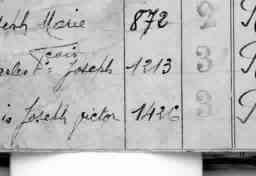 seph Marie 872 2
Trois
arles F: Joseph 1213 3
is Joseph victor 1426 3